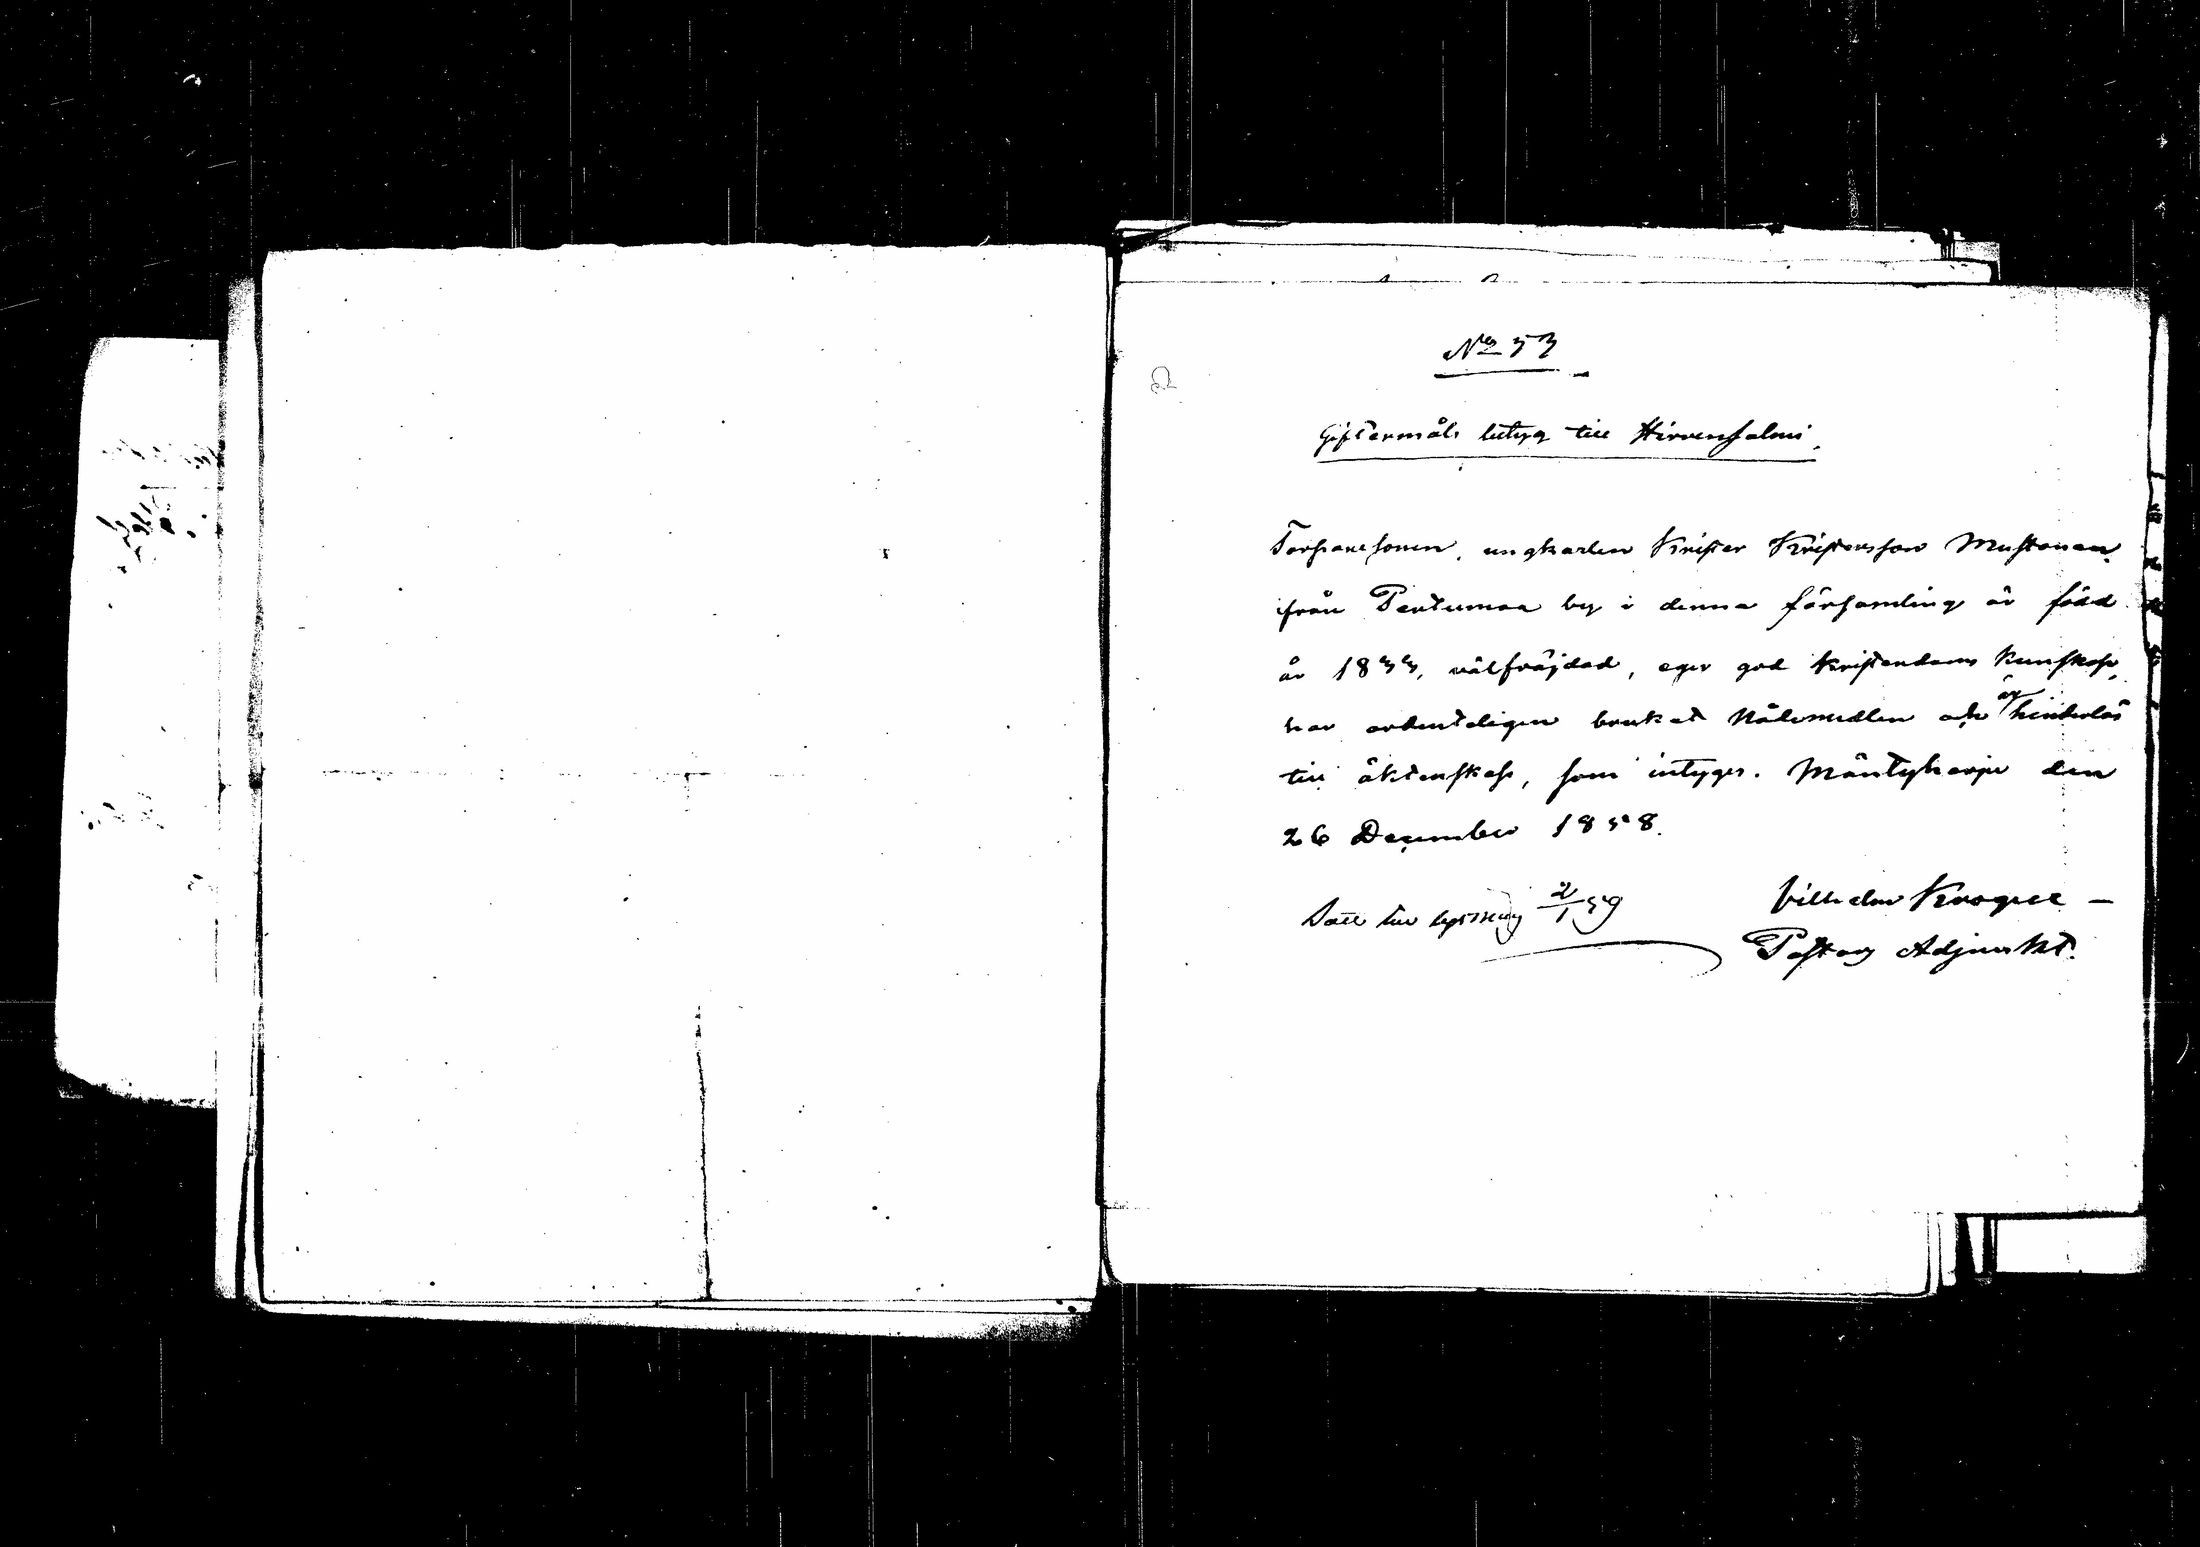 No 53
Giftermåls betyg till Hirvensalmi.
Torparesonen, ungkarlen Krister Kristersson Mustonen
från Pertumaa by i denna församling är född
år 1833, välfräjdad, eger god kristendoms kunskap,
har ordenteligen brukat Nådemedlen och är hinderlös
till äktenskap, som intygas. Mäntyharju den
26 December 1858.
till lysning 2/1 59
Vilhelm Krogell
Pastors Adjunkt.